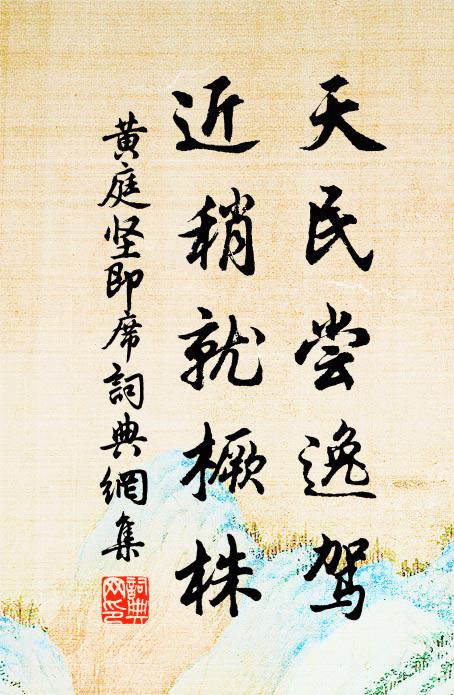 天民尝逸驾
近稍就橛株
黄庭坚即席詞典網集
詞典